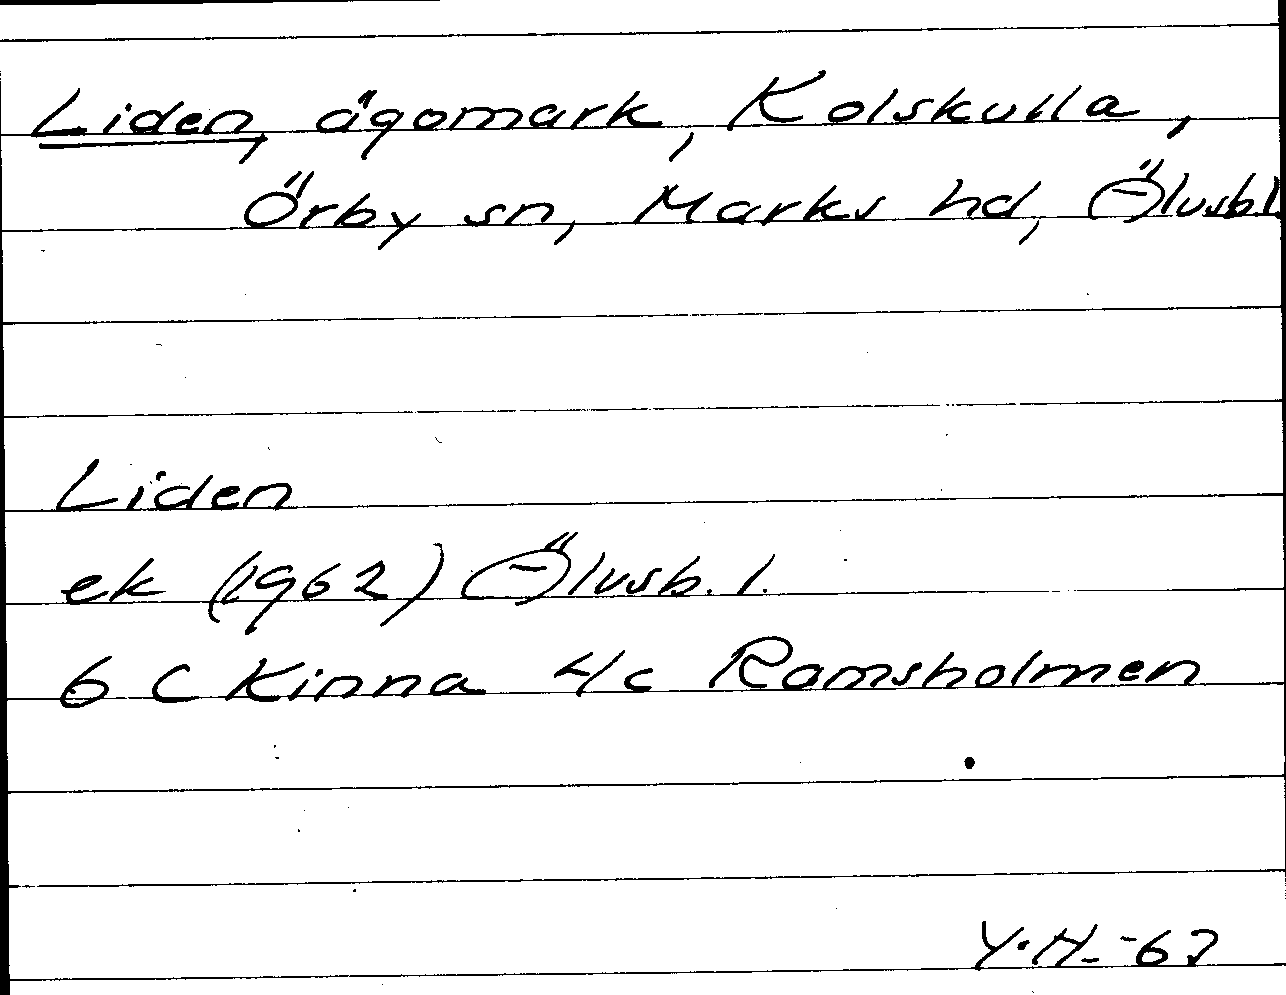 Liden, ägomark, Kolskulla,
Örby sn, Marks hd, Älvsb.l.
Liden
ek (1962) Älvsb. l.
6 C Kinna 4/c Ramsholmen
Y.H. -67